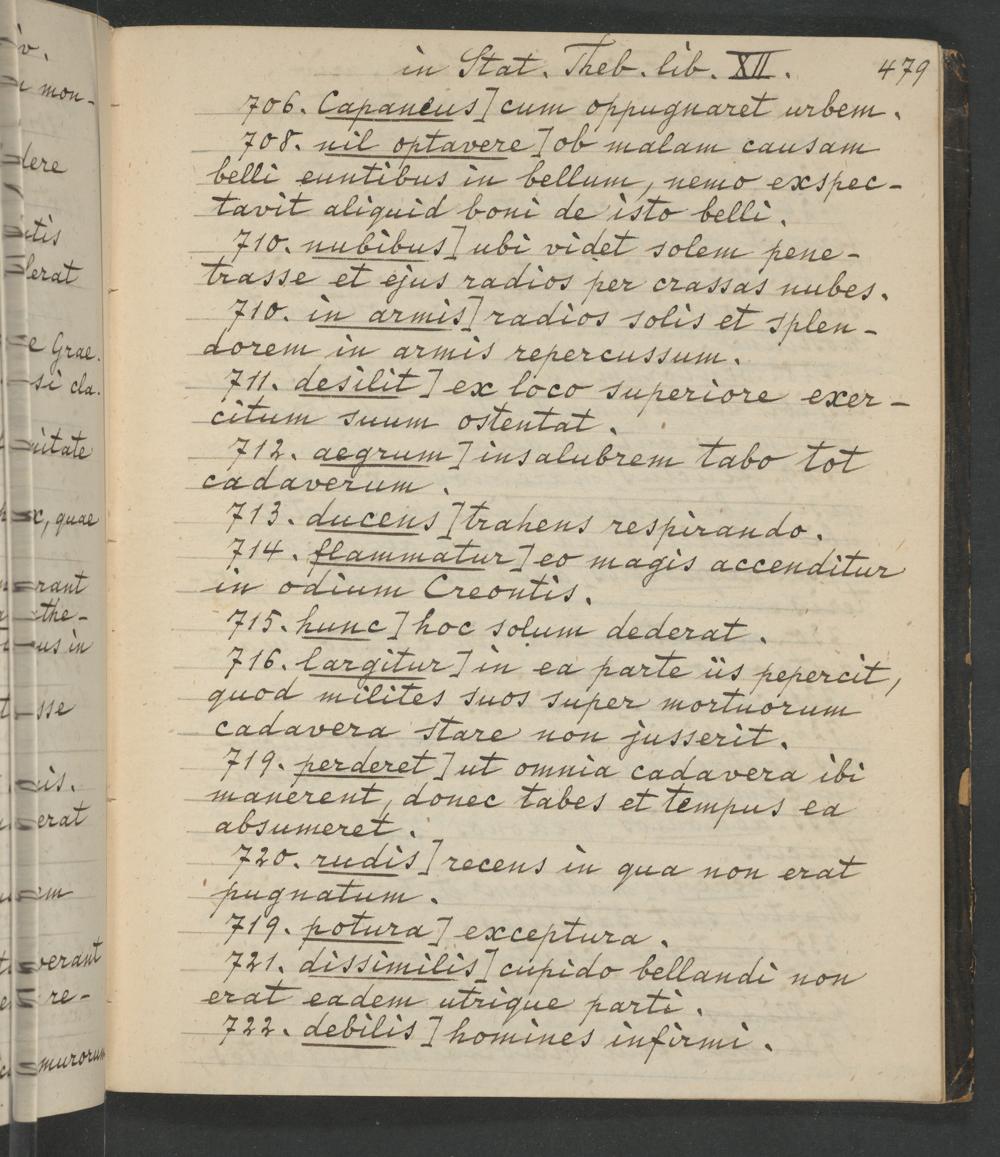 iv.
mon-
dere
lerat
e Grae.
si cla.
nitate
quae
rant
the-
us in
sse
erat
em
verant
re-
murorum
in Stat. Theb. lib. XII. 479
706. Capaneus] cum oppugnaret urbem.
708. nil optavere] ob malam causam
belli euntibus in bellum, nemo exspec-
tavit aliquid boni de isto belli.
710. nubibus] ubi videt solem pene-
trasse et ejus radios per crassas nubes.
710. in armis] radios solis et splen-
dorem in armis repercussum.
711. desilit] ex loco superiore exer-
citum suum ostentat.
712. aegrum] insalubrem tabo tot
cadaverum.
713. ducens] trahens respirando.
714. flammatur] eo magis accenditur
in odium Creontis.
715. hunc] hoc solum dederat.
716. largitur] in ea parte iis pepercit,
quod milites suos super mortuorum
cadavera stare non jusserit.
719. perderet] ut omnia cadavera ibi
manerent, donec tabes et tempus ea
absumeret.
720. rudis] recens in qua non erat
pugnatum.
719. potura] exceptura.
721. dissimilis] cupido bellandi non
erat eadem utrique parti.
722. debilis] homines infirmi.